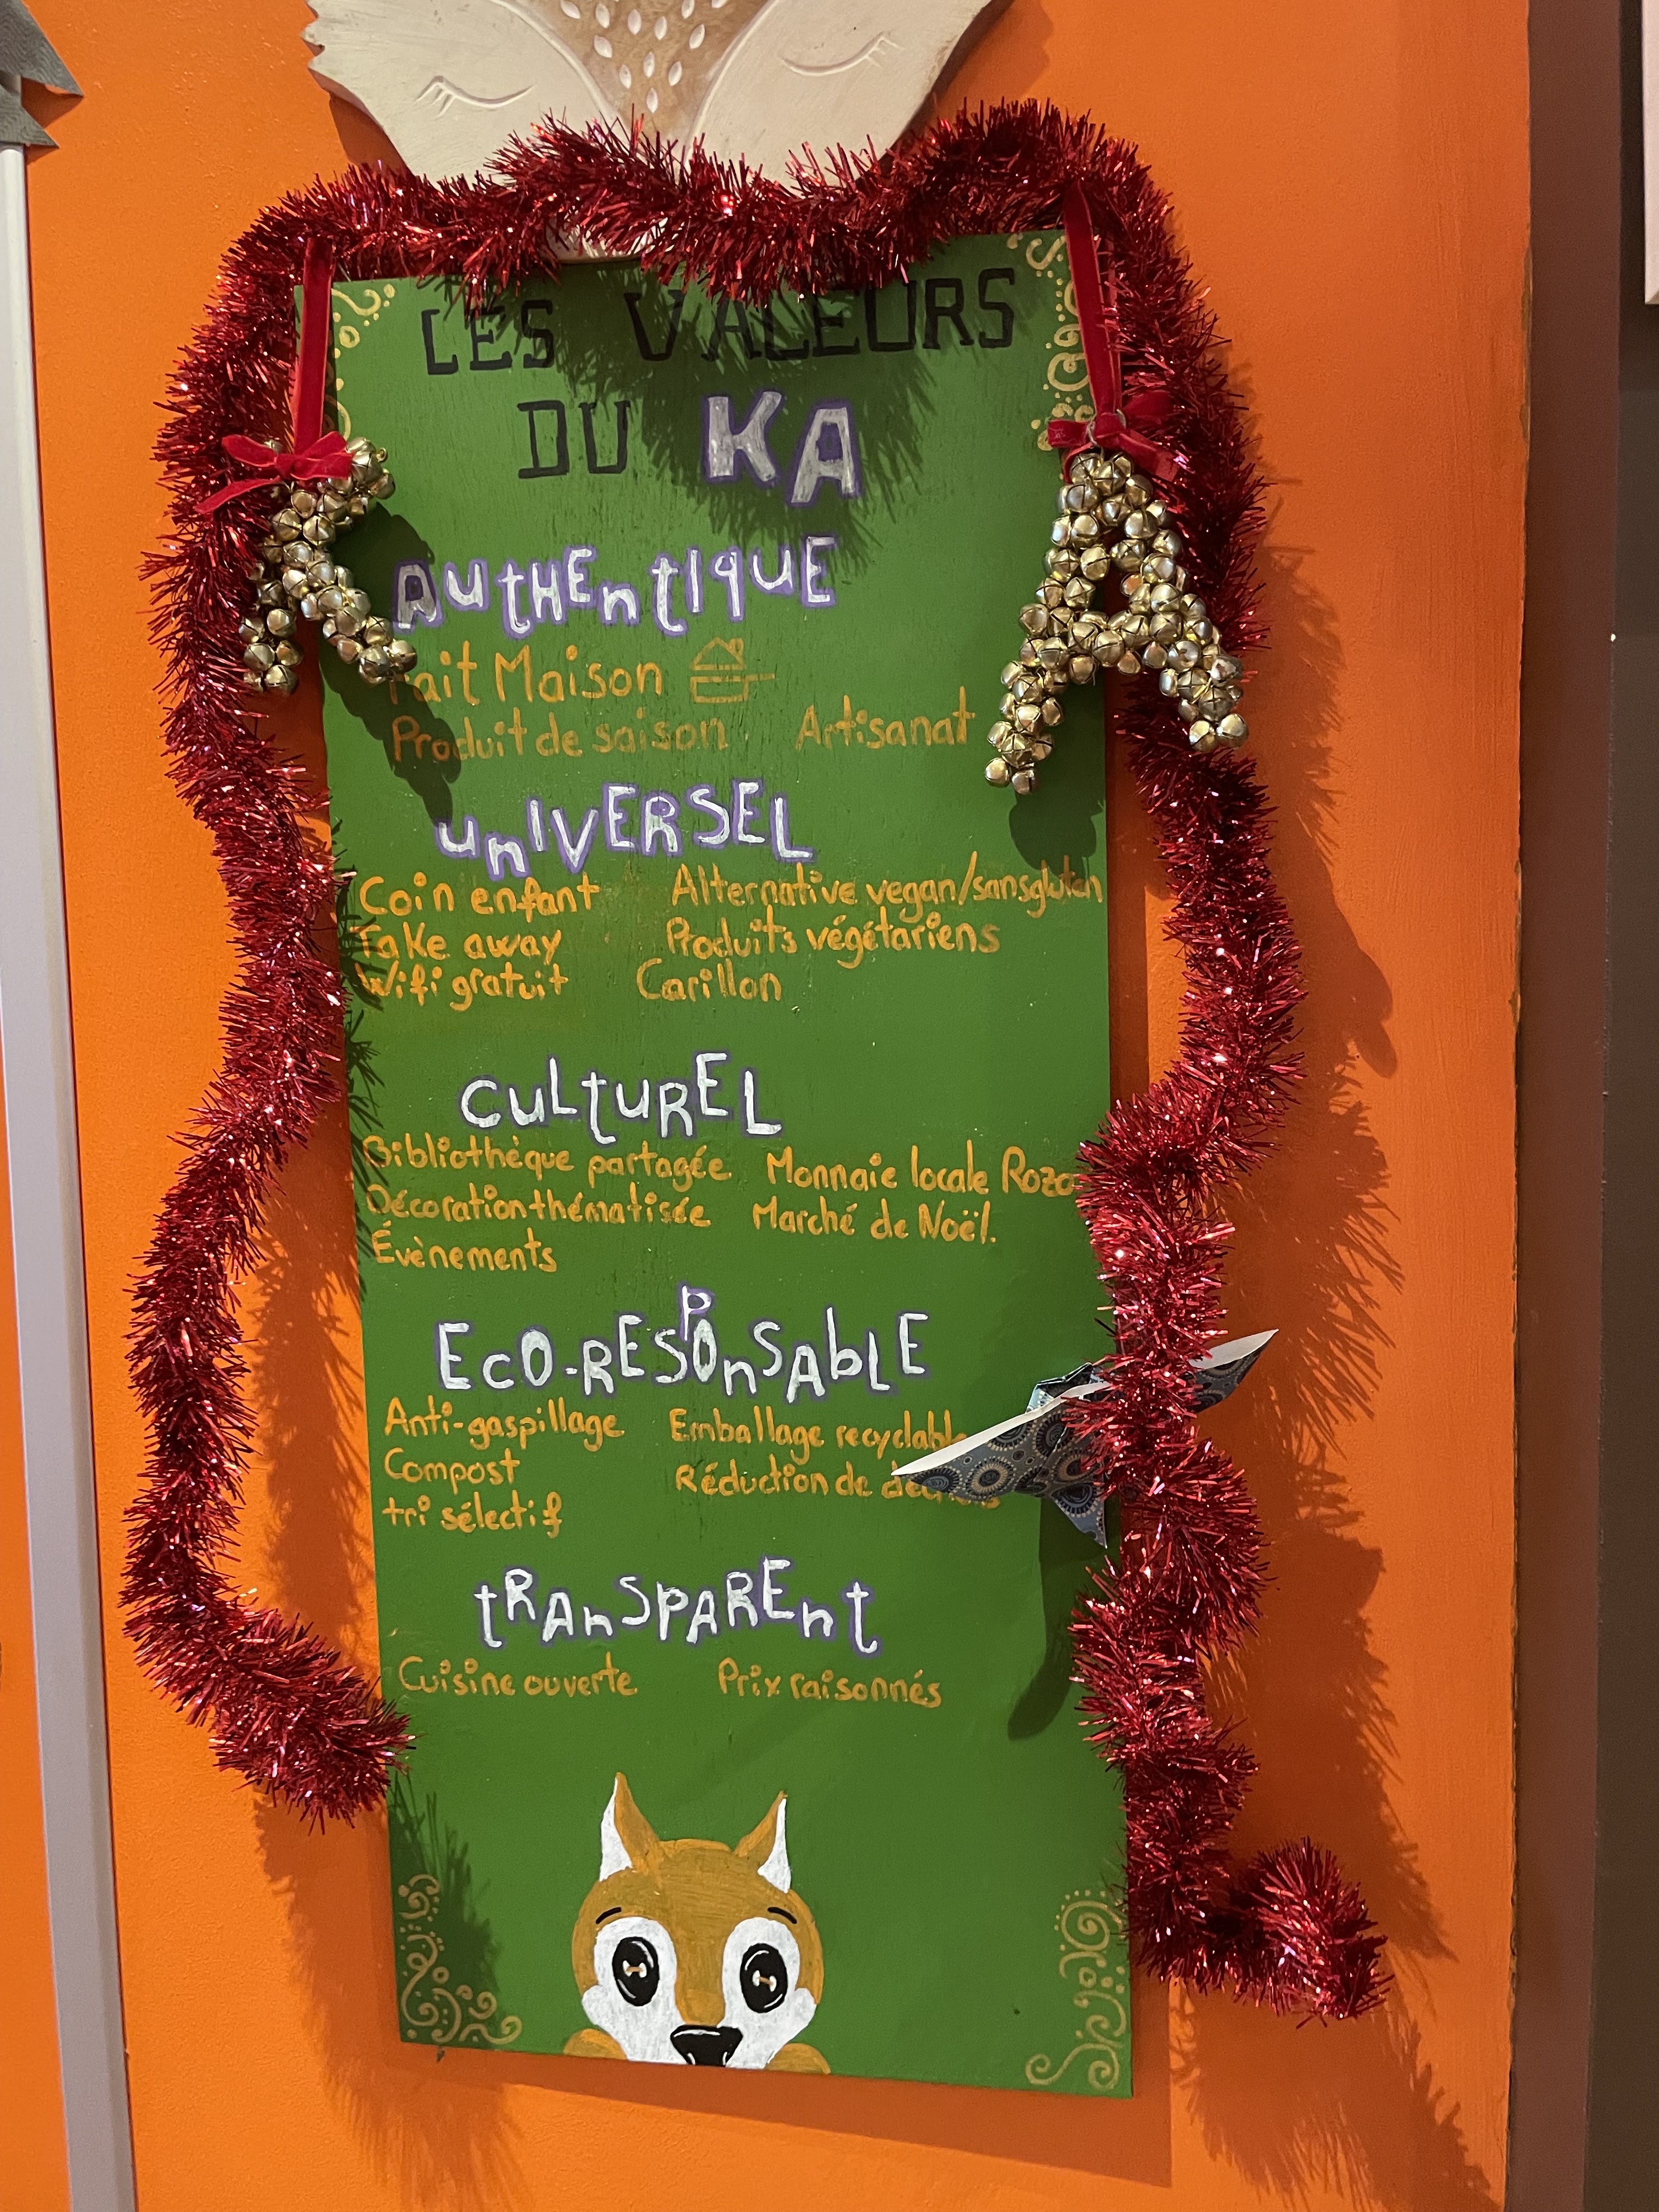 LES VALEURS
DU KA
AUtHEntIqUE
Fait Maison
Produit de saison Artisanat
unIVERSEL
Coin enfant Alternative vegan/sansgluten
Take away Produits végétariens
Wifi gratuit Carillon
CuLtuREL
Bibliothèque partagée Monnaie locale Rozo
Décoration thématisée Marché de Noël.
Évènements
EcO-RESPOnSAbLE
Anti-gaspillage Emballage recyclable
Compost Réduction de déchets
tri sélectif
tRAnSPAREnt
Cuisine ouverte Prix raisonnés